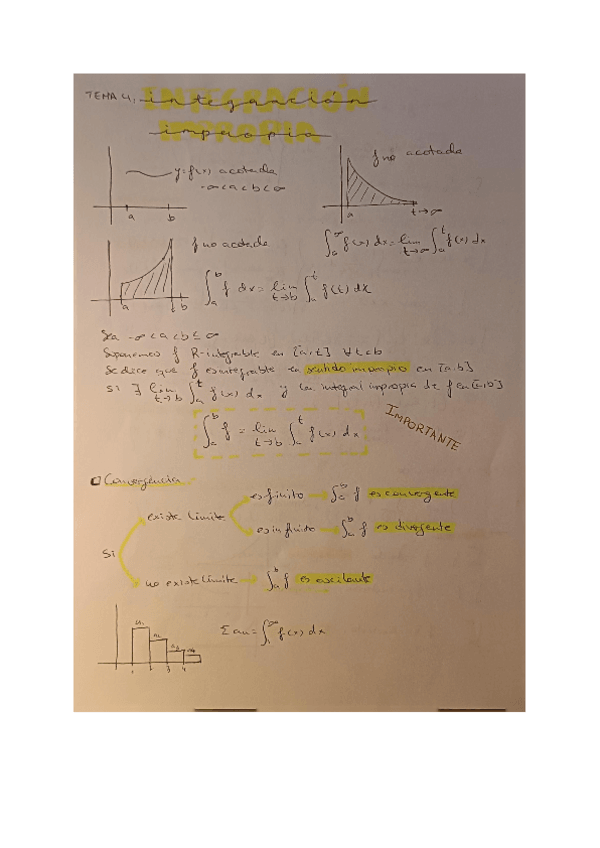 TEMA 4, integración
impropia
y=f(x) acotada
-∞<a<b<∞
a b
f no acotada
a t→∞
∫_a^∞ f(x) dx = lim_{t→∞} ∫_a^t f(x) dx
f no acotada
a t b
∫_a^b f dx = lim_{t→b} ∫_a^t f(t) dx
Sea -∞<a<b≤∞
Suponemos f R-integrable en [a,t] ∀t<b
Se dice que f es integrable en sentido impropio en [a,b]
si ∃ lim_{t→b} ∫_a^t f(x) dx y la integral impropia de f en [a,b]
∫_a^b f = lim_{t→b} ∫_a^t f(x) dx
IMPORTANTE
Convergencia
es finito → ∫_a^b f es convergente
existe límite
es infinito → ∫_a^b f es divergente
Si
no existe límite → ∫_a^b f es oscilante
Σ an = ∫_1^∞ f(x) dx
1 2 3 4